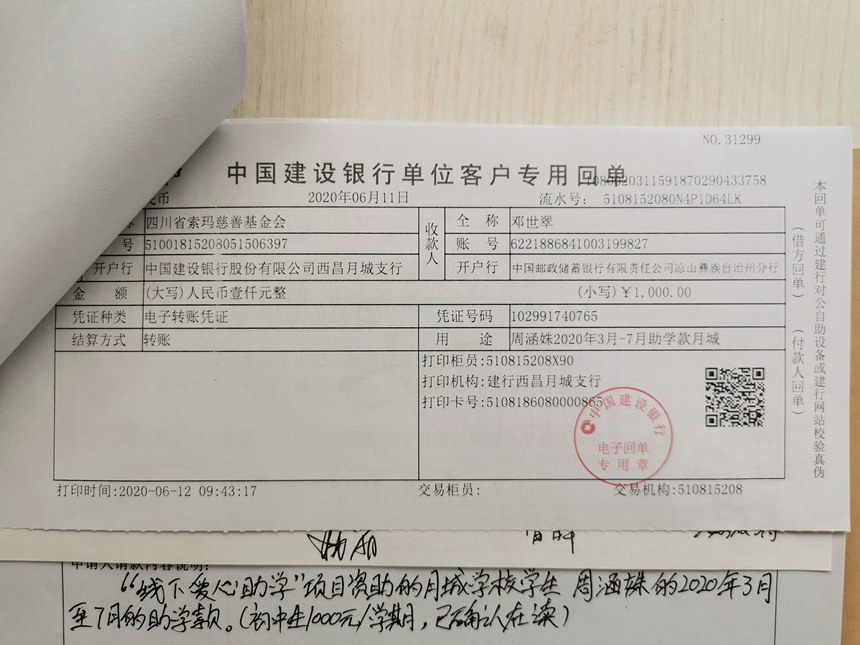 NO.31299
中国建设银行单位客户专用回单
币
2020年06月11日
流水号: 5108152080N4P1D64LK
1080020311591870290433758
称 四川省索玛慈善基金会
收款人
全 称 邓世翠
号 51001815208051506397
账 号 6221886841003199827
开户行 中国建设银行股份有限公司西昌月城支行
开户行 中国邮政储蓄银行有限责任公司凉山彝族自治州分行
金 额 (大写)人民币壹仟元整 (小写)¥1,000.00
凭证种类 电子转账凭证 凭证号码 102991740765
结算方式 转账 用 途 周涵姝2020年3月-7月助学款月城
打印柜员:510815208X90
打印机构:建行西昌月城支行
打印卡号:5108186080000865
中国建设银行
电子回单
专用章
打印时间:2020-06-12 09:43:17 交易柜员: 交易机构:510815208
本回单可通过建行对公自助设备或建行网站校验真伪
(借方回单)
(付款人回单)
申请人请款内容说明:
“线下爱心助学”项目资助的月城学校学生 周涵姝的2020年3月
至7月的助学款。(初中生1000元/学期,已确认在读)